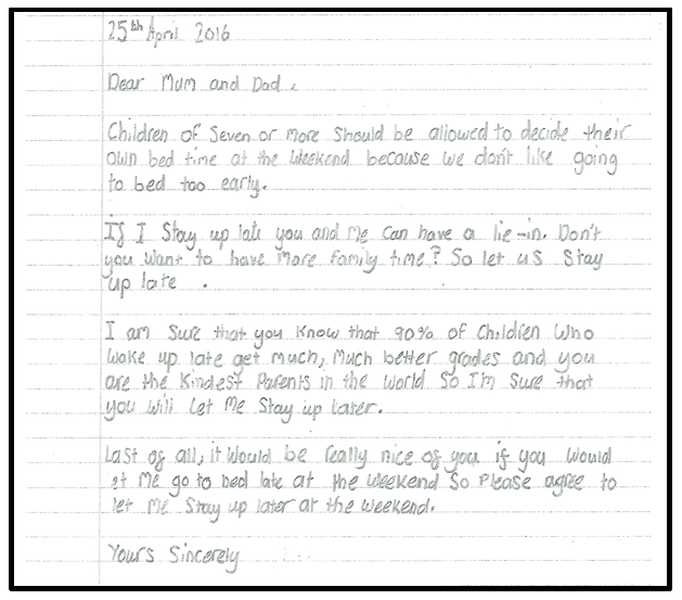 25th April 2016
Dear Mum and Dad,
Children of Seven or more Should be allowed to decide their
own bed time at the Weekend because we don't like going
to bed too early.
If I Stay up late you and Me Can have a lie-in. Don't
you Want to have More family time? So let us Stay
up late .
I am Sure that you Know that 90% of Children Who
Wake up late get much, Much better grades and you
are the Kindest Parents in the World So I'm Sure that
you Will Let Me Stay up later.
Last of all, it Would be really nice of you if you Would
let Me go to bed late at the Weekend So Please agree to
let Me Stay up later at the weekend.
Yours Sincerely